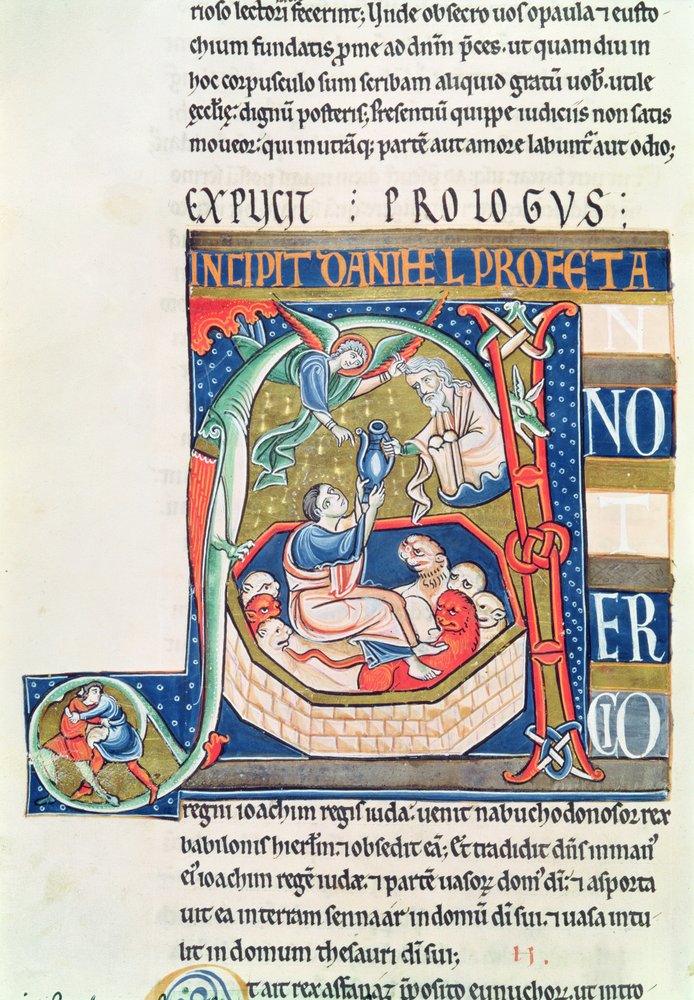 rioso lectori fecerint; Unde obsecro uos o paula ⁊ eusto
chium fundatis p̄ me ad dn̄m p̄ces. ut quam diu in
hoc corpusculo sum scribam aliquid gratū uob̄. utile
eccl̄ię: dignū posteris; Presentiū quippe iudiciis non satis
moueor: qui in utrāq; partē aut amore labunt̄ aut odio;
EXPLICIT : PROLOGVS :
INCIPIT DANIHEL PROFETA
N
NO
T
ER
CIO
regni ioachim regis iuda: uenit nabuchodonosor rex
babilonis hierl̄m: ⁊ obsedit eā; Et tradidit dn̄s in manu
ei᾿ ioachim regē iudæ ⁊ partē uasoꝝ dom᾿ dī: ⁊ asporta
uit ea in terram sennaar in domū dī sui. ⁊ uasa intu
lit in domum thesauri dī sui; II.
t ait rex asfanaz p̄posito eunuchoꝝ ut intro